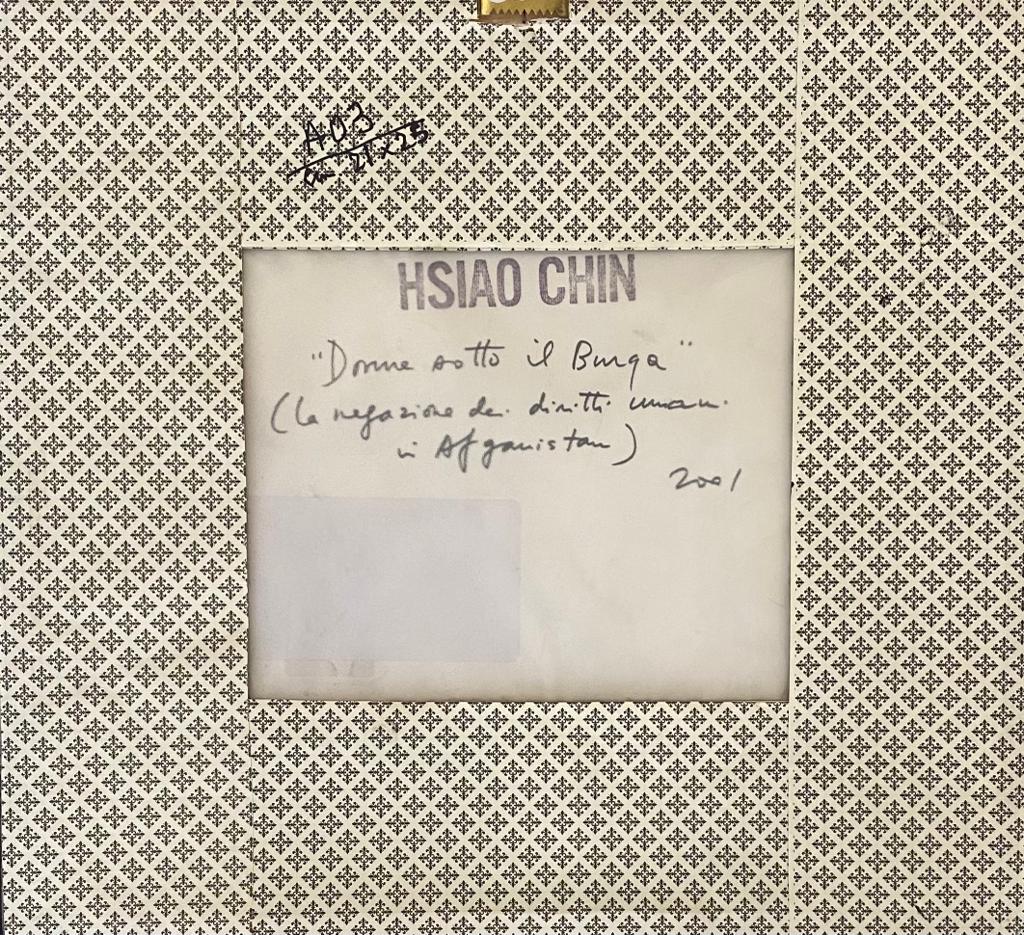 A03
cm 21x25
HSIAO CHIN
"Donne sotto il Burqa"
(la negazione dei diritti umani
in Afganistan)
2001